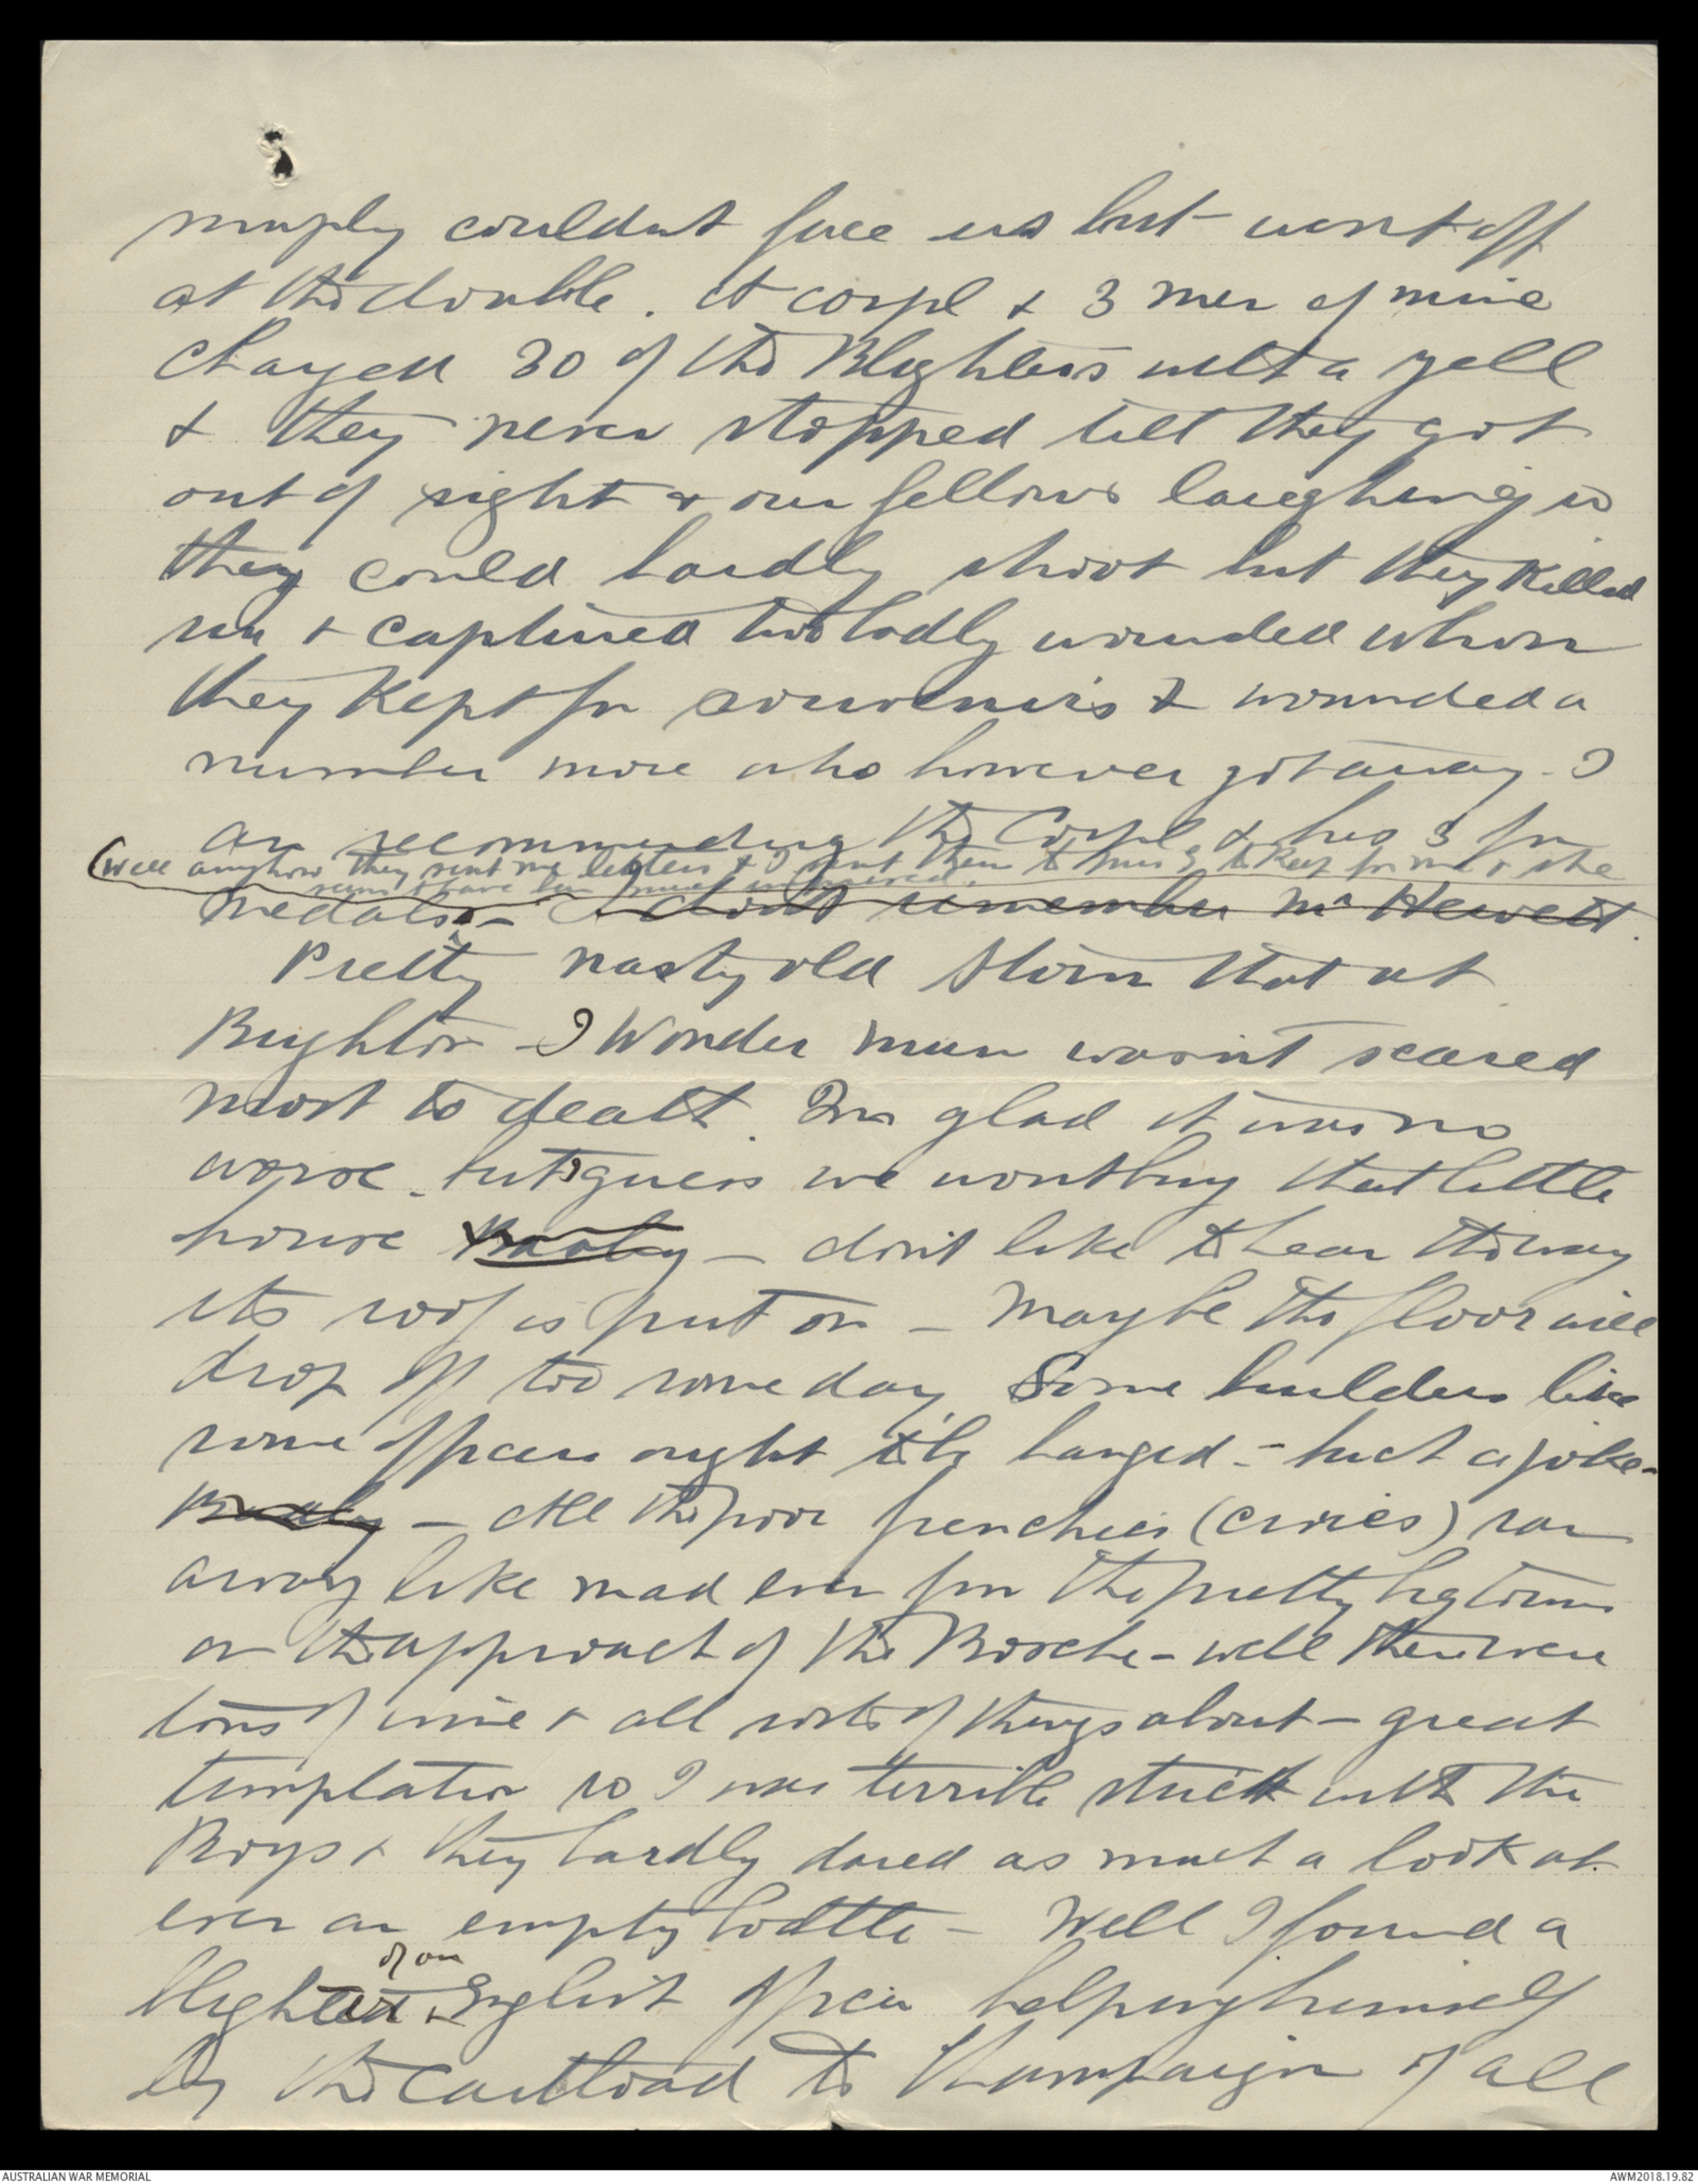 simply couldnt face us but went off
at the double. A corpl & 3 men of mine
charged 30 of the Blighters with a yell
& they never stopped till they got
out of sight & our fellows laughing so
they could hardly shoot but they killed
six & captured two badly wounded whom
they kept for souvenirs & wounded a
number more who however got away - I
am recommending the Corpl & his 3 for
(Well anyhow they sent me letters & I sent them to to keep for me & she
seems to have been much interested.
medals. - I dont remember Mr Hewett.
Pretty nasty old storm that at
Brighton - I Wonder mum wasnt scared
most to death. Im glad it was no
worse. but I guess we wont buy that little
house Booby - dont like to hear the way
its roof is put on - Maybe the floor will
drop off too some day. Some builders like
some officers ought to be hanged - such a joke -
All the poor frenchies (civies) ran
away like mad even from the pretty big towns
on the approach of the Bosche - well there were
tons of wine & all sorts of things about - great
temptation so I was terrible strict with the
Boys & they hardly dared as much a look at
even an empty bottle - Well I found a
of an
blighter English officer helping himself
by the cartload to Champaign of all
AUSTRALIAN WAR MEMORIAL
AWM2018.19.82